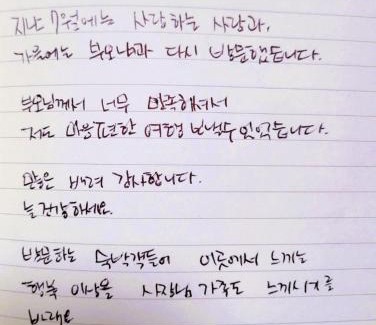 지난 7월에는 사랑하는 사람과,
가을에는 부모님과 다시 방문했습니다.
부모님께서 너무 만족하셔서
저도 마음편한 여행 보낼수 있었습니다.
많은 배려 감사합니다.
늘 건강하세요.
방문하는 숙박객들이 이곳에서 느끼는
행복 이상을 사장님 가족도 느끼시기를
바래요